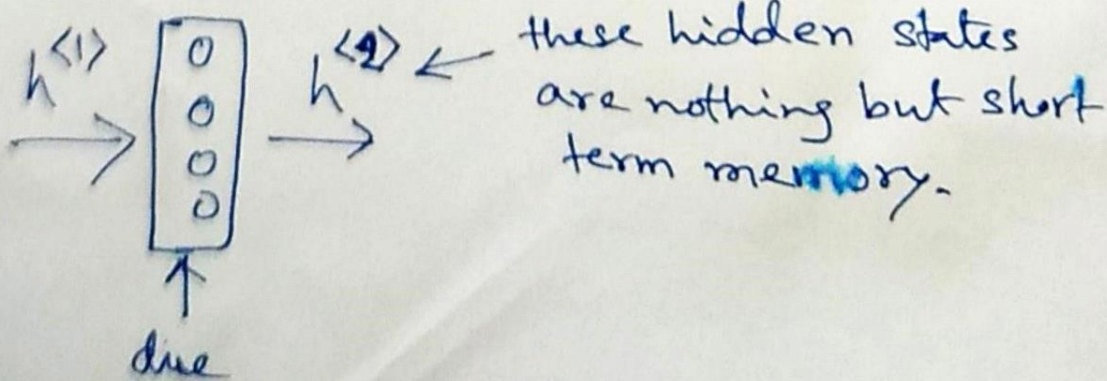 h<1>
h<2>
these hidden states
are nothing but short
term memory.
due